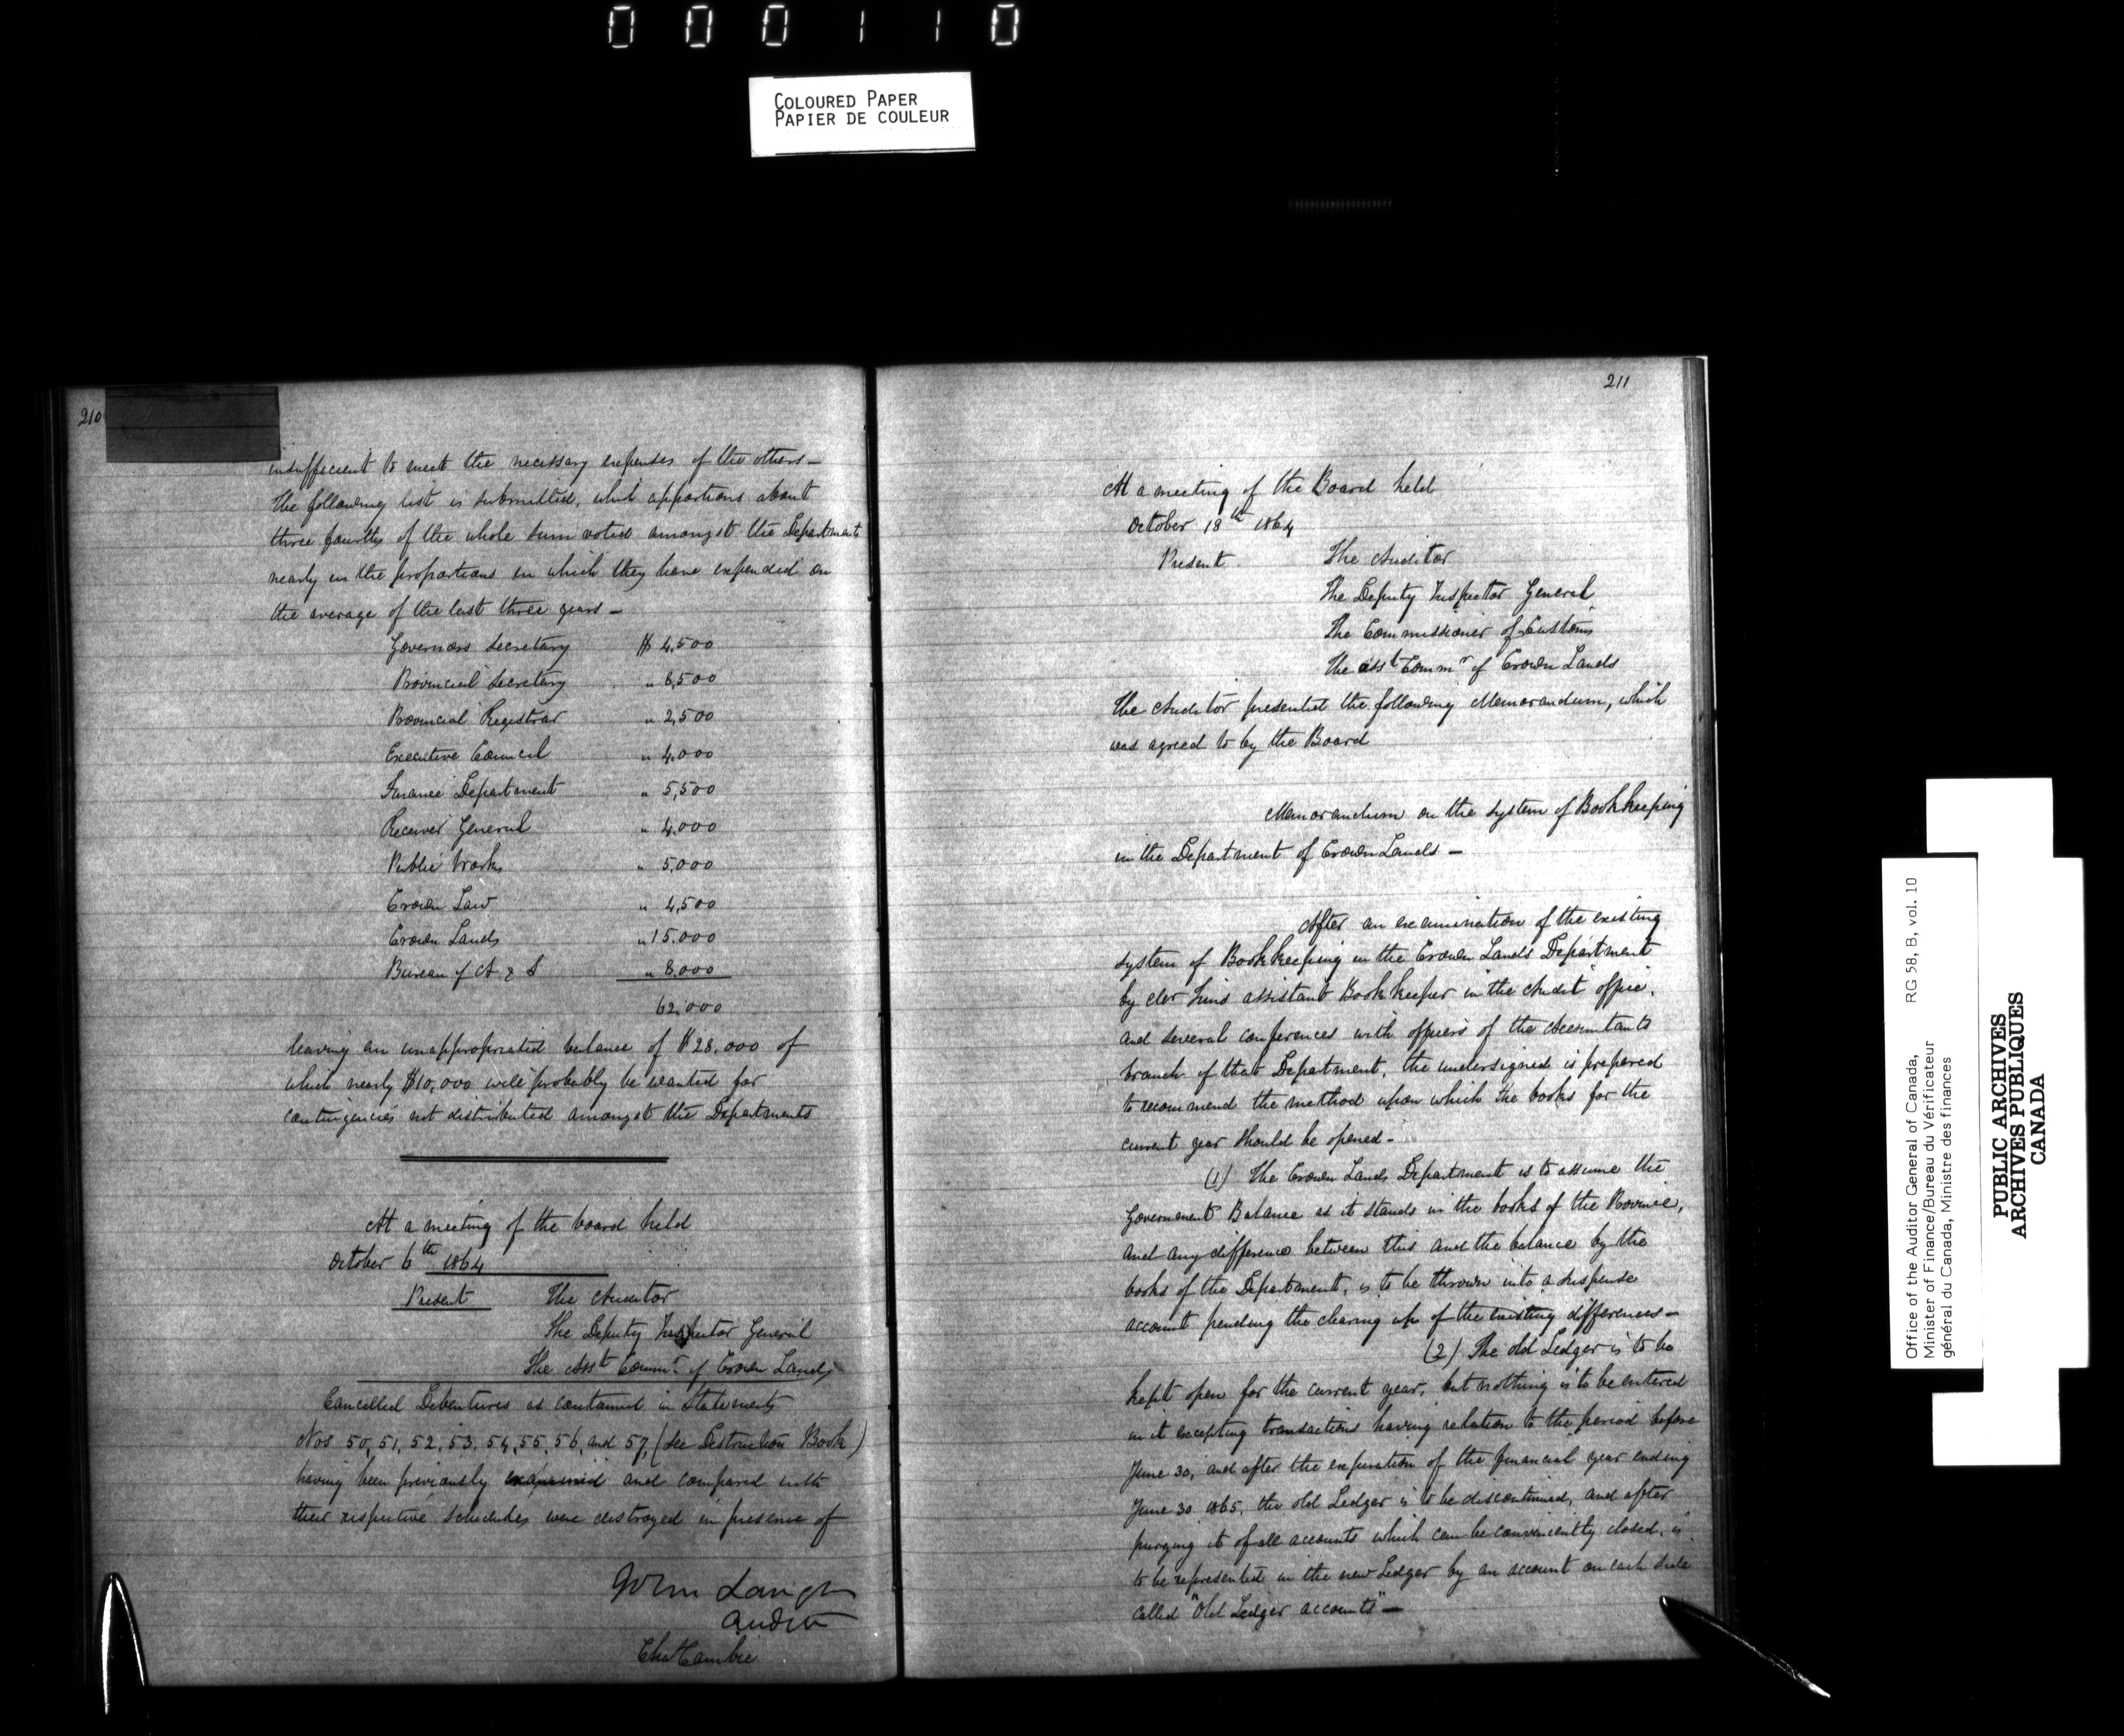 000110
COLOURED PAPER
PAPIER DE COULEUR
210
insufficient to meet the necessary expenses of the others —
The following list is submitted, which apportions about
three fourths of the whole sum voted amongst the Departments
nearly in the proportions in which they have expended on
the average of the last three years —
Governors Secretary $ 4,500
Provincial Secretary " 8,500
Provincial Registrar " 2,500
Executive Council " 4,000
Finance Department " 5,500
Receiver General " 4,000
Public Works " 5,000
Crown Law " 4,500
Crown Lands " 15,000
Bureau of A & S " 8,000
62,000
leaving an unappropriated balance of $28,000 of
which nearly $10,000 will probably be wanted for
contingencies not distributed amongst the Departments
At a meeting of the board held
October 6th 1864
Present The Auditor
The Deputy Inspector General
The Asst Commr. of Crown Lands
Cancelled Debentures as contained in Statements
Nos 50, 51, 52, 53, 54, 55, 56, and 57, (see Destruction Book)
having been previously examined and compared with
their respective schedules were destroyed in presence of
John Langton
Auditor
Chs Cambie
211
At a meeting of the Board held
October 18th 1864
Present. The Auditor
The Deputy Inspector General
The Commissioner of Customs
The Asst Commr of Crown Lands
The Auditor presented the following Memorandum, which
was agreed to by the Board
Memorandum on the system of Bookkeeping
in the Department of Crown Lands —
After an examination of the existing
system of Bookkeeping in the Crown Lands Department
by assistant Bookkeeper in the Audit office,
and several conferences with officers of the Accountants
branch of that Department, the undersigned is prepared
to recommend the method upon which the books for the
current year should be opened -
(1) The Crown Lands Department is to assume the
Government Balance as it stands in the books of the Province,
and any difference between this and the balance by the
books of the Department, is to be thrown into a suspense
account pending the clearing up of the existing differences —
(2) The old Ledger is to be
kept open for the current year, but nothing is to be entered
in it excepting transactions having relation to the period before
June 30, and after the expiration of the financial year ending
June 30 1865, the old Ledger is to be discontinued, and after
purging it of all accounts which can be conveniently closed, is
to be represented in the new Ledger by an account on each side
called "Old Ledger accounts" —
Office of the Auditor General of Canada, RG 58, B, vol. 10
Minister of Finance/Bureau du Vérificateur
général du Canada, Ministre des finances
PUBLIC ARCHIVES
ARCHIVES PUBLIQUES
CANADA